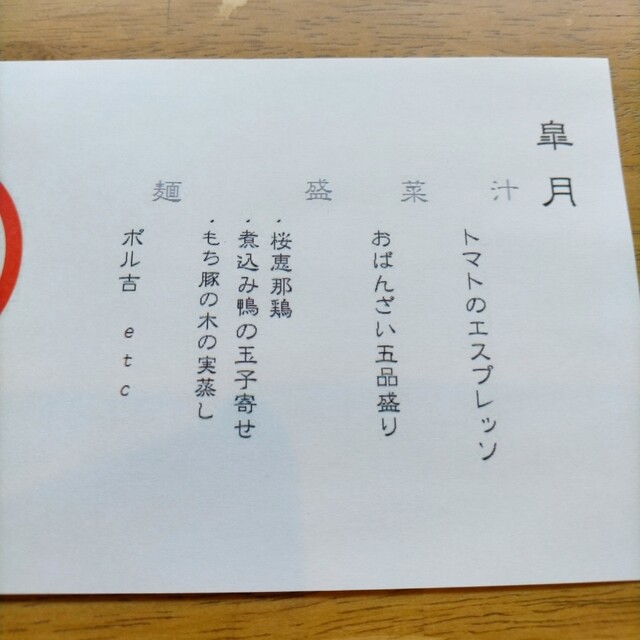 皐月
汁
トマトのエスプレッソ
菜
おばんざい五品盛り
盛
・桜恵那鶏
・煮込み鴨の玉子寄せ
・もち豚の木の実蒸し
麺
ボル吉 etc